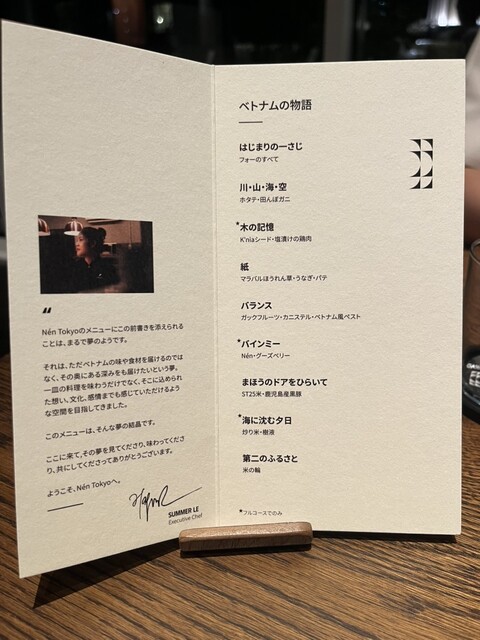 “
Nén Tokyoのメニューにこの前書きを添えられる
ことは、まるで夢のようです。
それは、ただベトナムの味や食材を届けるのでは
なく、その奥にある深みをも届けたいという夢。
一皿の料理を味わうだけでなく、そこに込められ
た想い、文化、感情までも感じていただけるよう
な空間を目指してきました。
このメニューは、そんな夢の結晶です。
ここに来て、その夢を見てくださり、味わってくださ
り、共にしてくださってありがとうございます。
ようこそ、Nén Tokyoへ。
SUMMER LE
Executive Chef
ベトナムの物語
はじまりの一さじ
フォーのすべて
川・山・海・空
ホタテ・田んぼガニ
*木の記憶
K'niaシード・塩漬けの鶏肉
紙
マラバルほうれん草・うなぎ・パテ
バランス
ガックフルーツ・カニステル・ベトナム風ペスト
*バインミー
Nén・グーズベリー
まほうのドアをひらいて
ST25米・鹿児島産黒豚
*海に沈む夕日
炒り米・樹液
第二のふるさと
米の輪
*フルコースでのみ